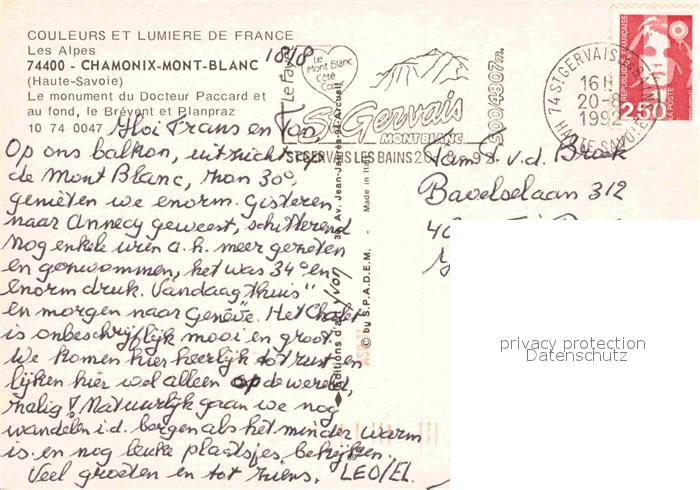 COULEURS ET LUMIERE DE FRANCE
Les Alpes
74400 - CHAMONIX-MONT-BLANC
(Haute-Savoie)
Le monument du Docteur Paccard et
au fond, le Brévent et Planpraz
10 74 0047
18/8
Hoi Frans en Ton,
Op ons balkon, uitzicht op
de Mont Blanc, zon 30°,
genieten we enorm. Gisteren
naar Annecy geweest, schitterend
nog enkele uren a.h. meer gezeten
en gezwommen, het was 34° en
enorm druk. Vandaag "thuis"
en morgen naar Genève. Het Chalet
is onbeschrijflijk mooi en groot.
We komen hier heerlijk tot rust en
lijken hier wel alleen op de wereld,
zalig! Natuurlijk gaan we nog
wandelen i.d. bergen als het minder warm
is en nog leuke plaatsjes bekijken.
Veel groeten en tot ziens. LEO/EL.
Le Fayet
Le Mont Blanc
Côté
Cœur
St Gervais
MONT BLANC
500/4807m.
ST GERVAIS LES BAINS
74 ST GERVAIS LES BAINS
16H
20-8
1992
HAUTE SAVOIE
REPUBLIQUE FRANÇAISE
LA POSTE
2,50
Éditions d'art Yvon
Av. Jean-Jaurès - 94 Arcueil
© by S.P.A.D.E.M. - Made in
Fam. F. v.d. Broek
Bavelselaan 312
privacy protection
Datenschutz